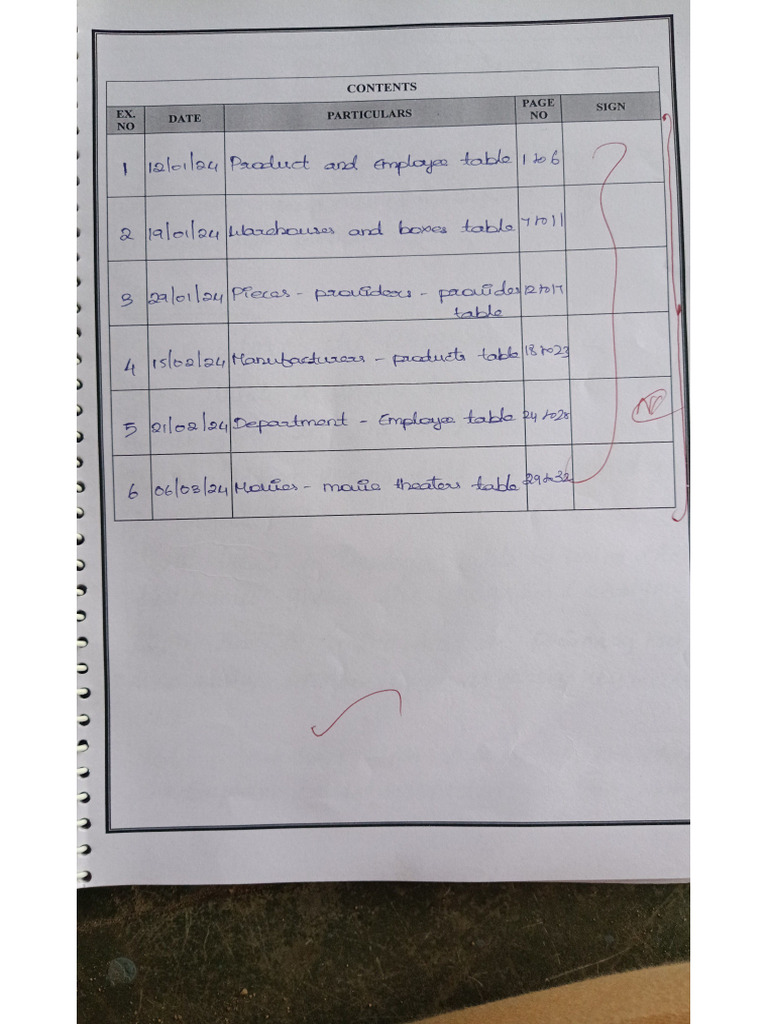 CONTENTS
EX. NO DATE PARTICULARS PAGE NO SIGN
1 12/01/24 Product and Employee table 1 to 6
2 19/01/24 Warehouses and boxes table 7 to 11
3 29/01/24 Pieces - providers - provides 12 to 17
table
4 15/02/24 Manufacturers - products table 18 to 23
5 21/02/24 Department - Employee table 24 to 28
6 06/03/24 Movies - movie theaters table 29 to 32